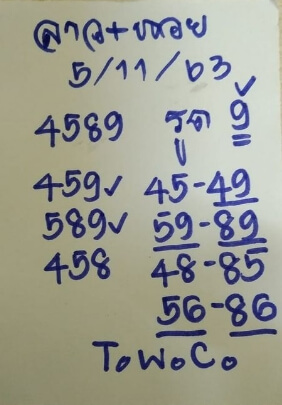 ลาว+หวย
5/11/63
4589 รูด 9
459✓ 45-49
589✓ 59-89
458 48-85
56-86
T.W.C.